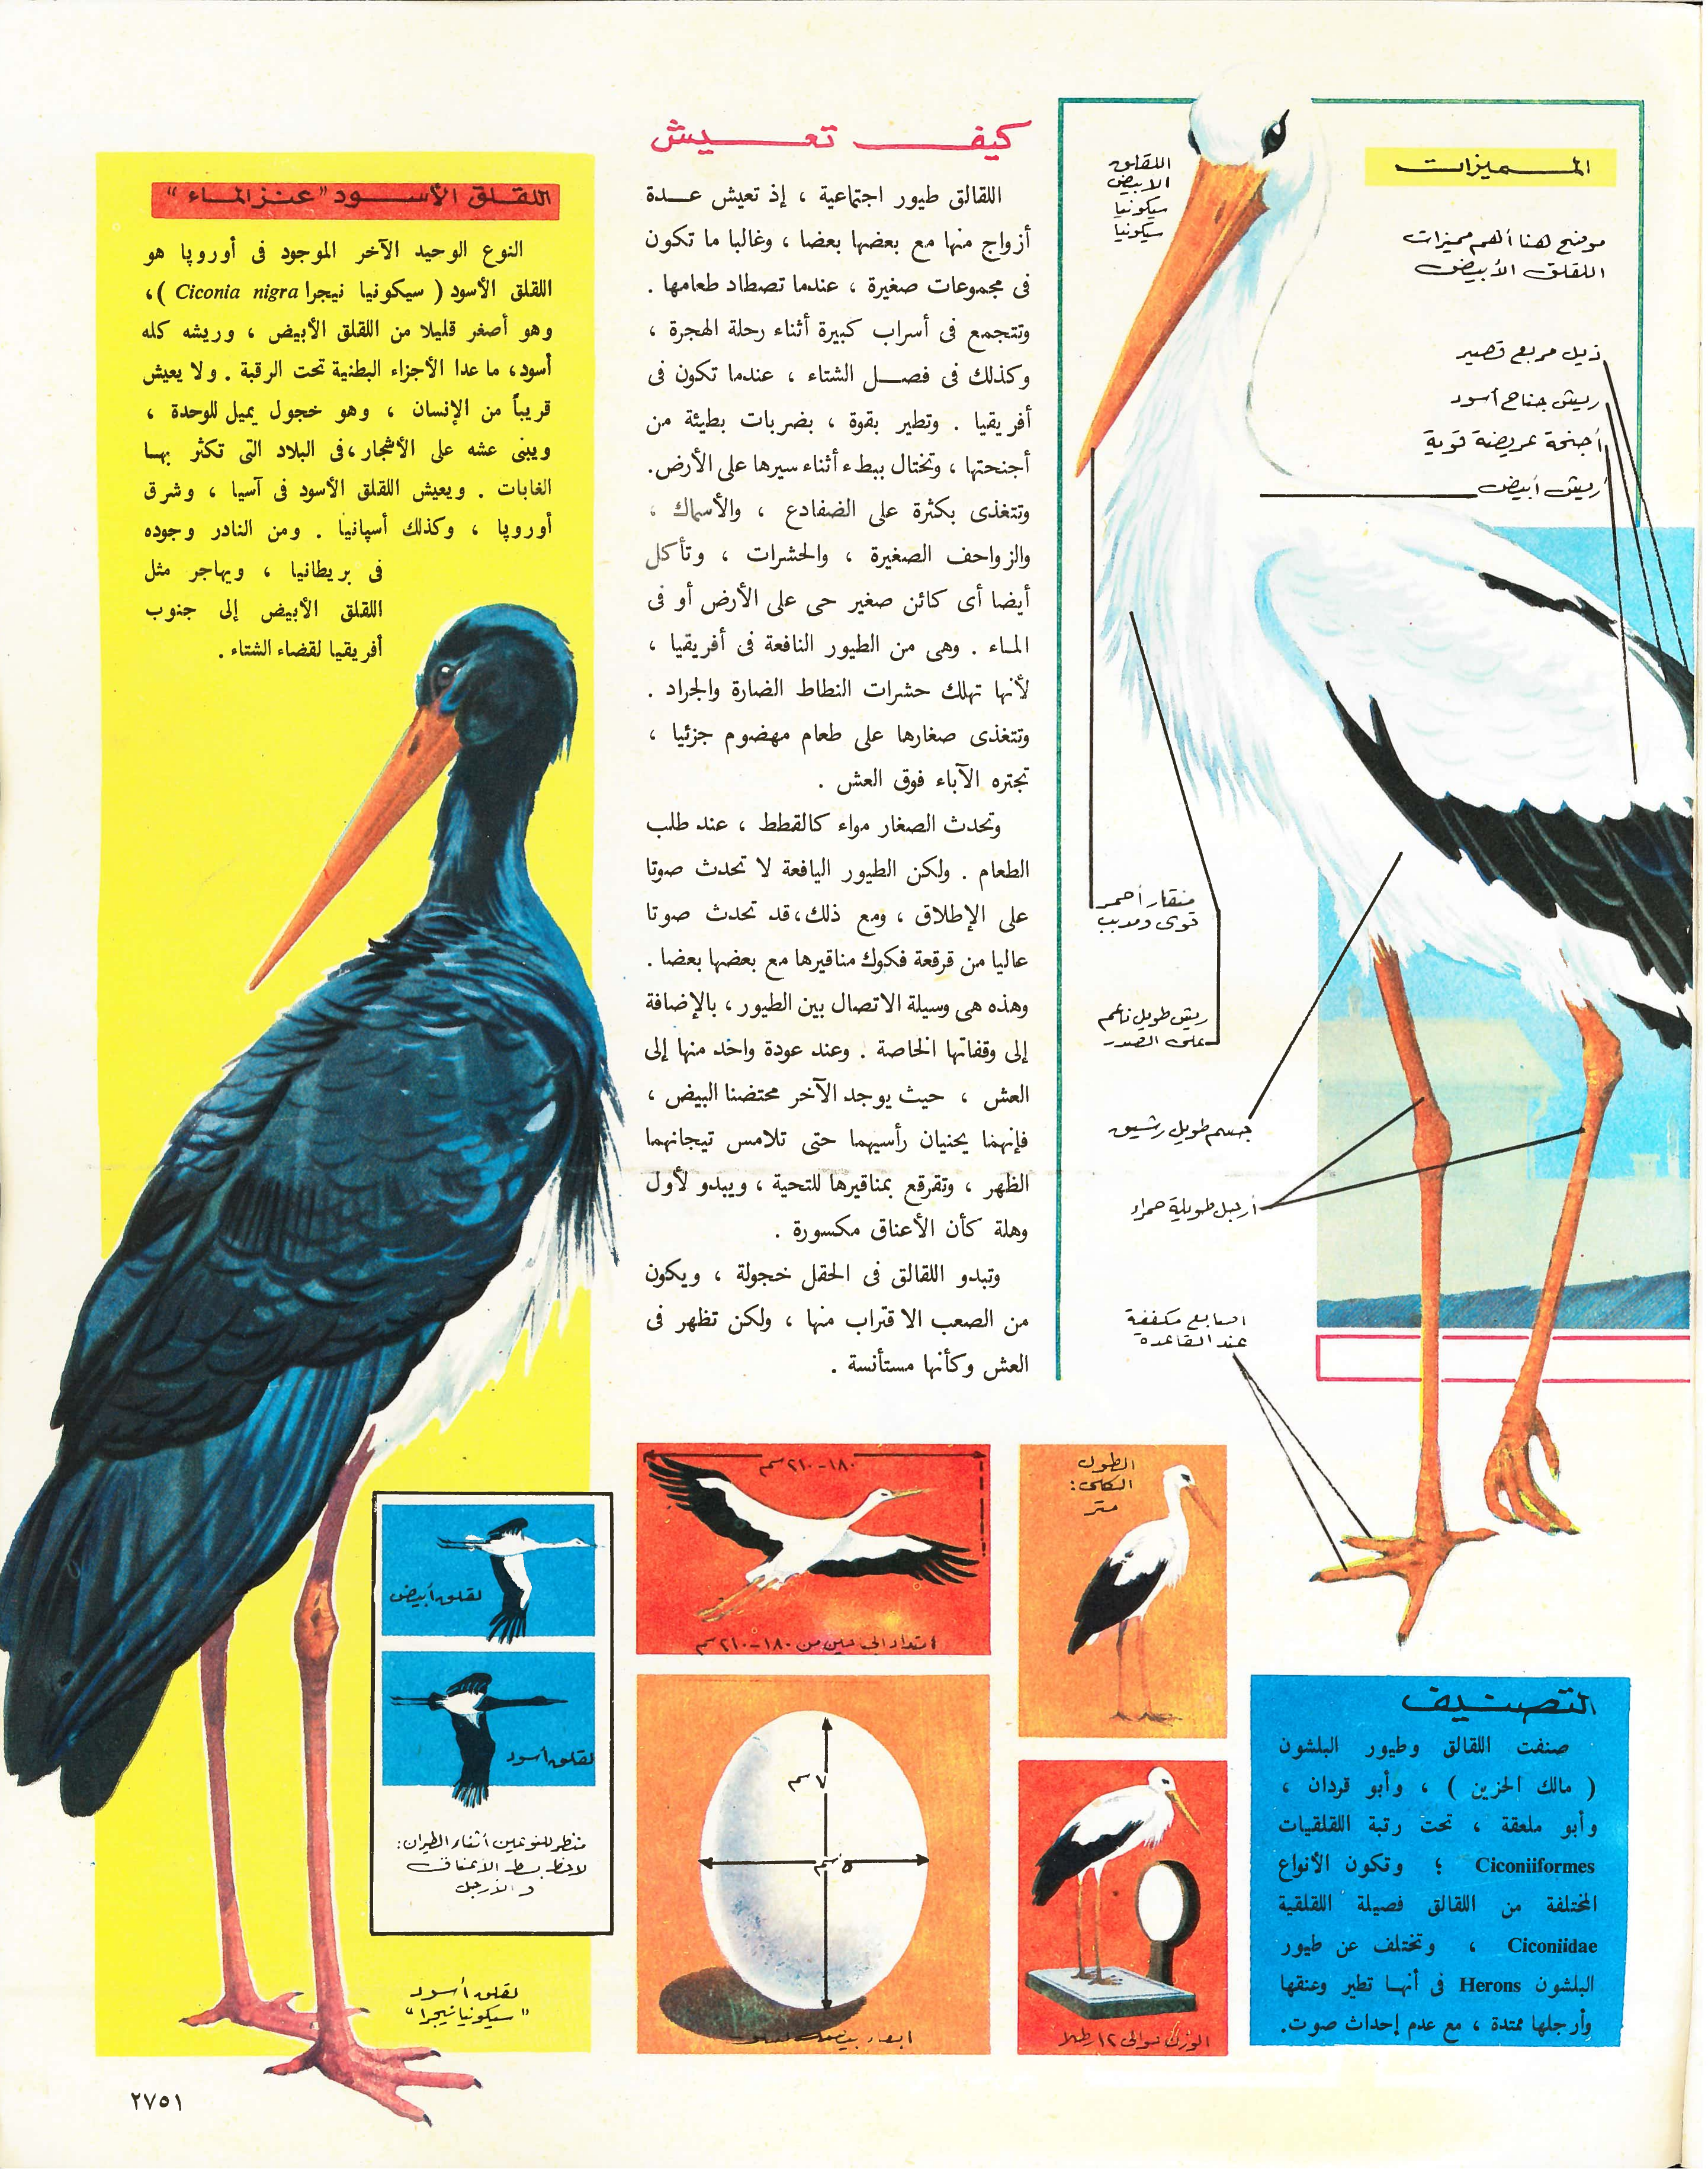 المميزات
موضح هنا أهم مميزات
اللقلق الأبيض
اللقلق
الأبيض
سيكونيا
سيكونيا
ذيل مربع قصير
ريش جناح أسود
أجنحة عريضة قوية
ريش أبيض
منقار أحمر
قوى ومدبب
ريش طويل ناعم
على الصدر
جسم طويل رشيق
أرجل طويلة حمراء
أصابع مكففة
عند القاعدة
كيف تعيش
اللقالق طيور اجتماعية ، إذ تعيش عدة
أزواج منها مع بعضها بعضا ، وغالبا ما تكون
فى مجموعات صغيرة ، عندما تصطاد طعامها .
وتتجمع فى أسراب كبيرة أثناء رحلة الهجرة ،
وكذلك فى فصل الشتاء ، عندما تكون فى
أفريقيا . وتطير بقوة ، بضربات بطيئة من
أجنحتها ، وتختال ببطء أثناء سيرها على الأرض.
وتتغذى بكثرة على الضفادع ، والأسماك ،
والزواحف الصغيرة ، والحشرات ، وتأكل
أيضا أى كائن صغير حى على الأرض أو فى
الماء . وهى من الطيور النافعة فى أفريقيا ،
لأنها تهلك حشرات النطاط الضارة والجراد .
وتتغذى صغارها على طعام مهضوم جزئيا ،
تجتره الآباء فوق العش .
وتحدث الصغار مواء كالقطط ، عند طلب
الطعام . ولكن الطيور اليافعة لا تحدث صوتا
على الإطلاق ، ومع ذلك، قد تحدث صوتا
عاليا من قرقعة فكوك مناقيرها مع بعضها بعضا .
وهذه هى وسيلة الاتصال بين الطيور ، بالإضافة
إلى وقفاتها الخاصة . وعند عودة واحد منها إلى
العش ، حيث يوجد الآخر محتضنا البيض ،
فإنهما يحنيان رأسيهما حتى تلامس تيجانهما
الظهر ، وتقرقع بمناقيرها للتحية ، ويبدو لأول
وهلة كأن الأعناق مكسورة .
وتبدو اللقالق فى الحقل خجولة ، ويكون
من الصعب الاقتراب منها ، ولكن تظهر فى
العش وكأنها مستأنسة .
اللقلق الأسود "عنز الماء"
النوع الوحيد الآخر الموجود فى أوروپا هو
اللقلق الأسود ( سيكونيا نيجرا Ciconia nigra )،
وهو أصغر قليلا من اللقلق الأبيض ، وريشه كله
أسود، ما عدا الأجزاء البطنية تحت الرقبة . ولا يعيش
قريباً من الإنسان ، وهو خجول يميل للوحدة ،
ويبنى عشه على الأشجار ،فى البلاد التى تكثر بها
الغابات . ويعيش اللقلق الأسود فى آسيا ، وشرق
أوروپا ، وكذلك أسپانيا . ومن النادر وجوده
فى بريطانيا ، ويهاجر مثل
اللقلق الأبيض إلى جنوب
أفريقيا لقضاء الشتاء .
١٨٠-٢١٠سم
امتداد الجناحين من ١٨٠-٢١٠سم
الطول
الكلى:
متر
٧ سم
٥ سم
أبعاد بيضة
الوزن حوالى ١٢ رطلا
لقلق أبيض
لقلق أسود
منظر للنوعين أثناء الطيران:
لاحظ بسط الأعناق
والأرجل
لقلق أسود
"سيكونيا نيجرا"
التصنيف
صنفت اللقالق وطيور البلشون
( مالك الحزين ) ، وأبو قردان ،
وأبو ملعقة ، تحت رتبة اللقلقيات
Ciconiiformes ؛ وتكون الأنواع
المختلفة من اللقالق فصيلة اللقلقية
Ciconiidae ، وتختلف عن طيور
البلشون Herons فى أنها تطير وعنقها
وأرجلها ممتدة ، مع عدم إحداث صوت.
٢٧٥١